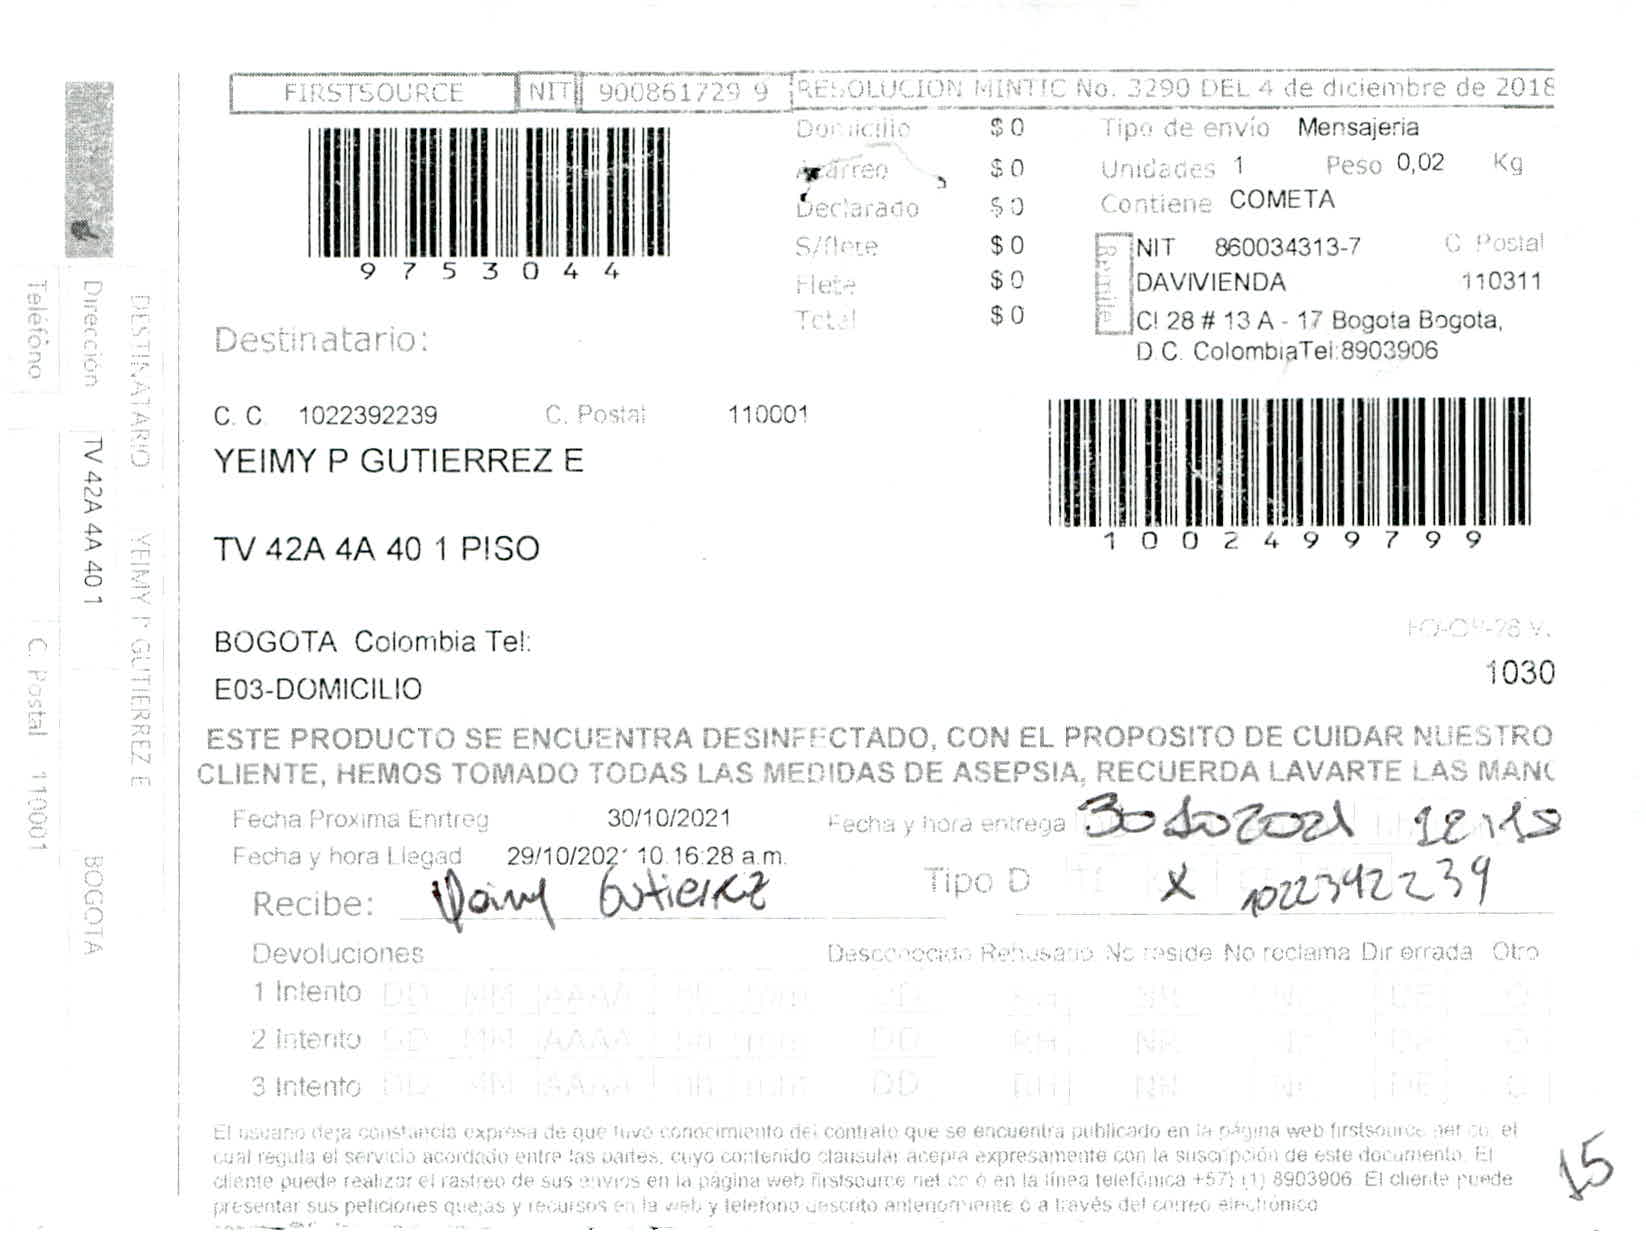 FIRSTSOURCE NIT 900861729 9 RESOLUCION MINTIC No. 3290 DEL 4 de diciembre de 2018
9753044
Domicilio $ 0
Acarreo $ 0
Declarado $ 0
S/flete $ 0
Flete $ 0
Total $ 0
Tipo de envío Mensajeria
Unidades 1 Peso 0,02 Kg
Contiene COMETA
Remite
NIT 860034313-7 C Postal
DAVIVIENDA 110311
Cl 28 # 13 A - 17 Bogota Bogota,
D.C. ColombiaTel:8903906
Destinatario:
C. C. 1022392239 C. Postal 110001
YEIMY P GUTIERREZ E
1002499799
TV 42A 4A 40 1 PISO
BOGOTA Colombia Tel:
1030
E03-DOMICILIO
ESTE PRODUCTO SE ENCUENTRA DESINFECTADO, CON EL PROPOSITO DE CUIDAR NUESTRO
CLIENTE, HEMOS TOMADO TODAS LAS MEDIDAS DE ASEPSIA, RECUERDA LAVARTE LAS MAN
Fecha Proxima Enrtreg 30/10/2021 Fecha y hora entrega 30 10 2021 12:10
Fecha y hora Llegad 29/10/2021 10:16:28 a.m.
Tipo D X 1022392239
Recibe: Yeimy Gutierrez
Devoluciones Desconocido Rehusado No reside No reclama Dir errada Otro
1 Intento DD MM AAAA hh mm DD RH NR NC DE O
2 Intento DD MM AAAA hh mm DD RH NR NC DE O
3 Intento DD MM AAAA hh mm DD RH NR NC DE O
El usuario deja constancia expresa de que tuvo conocimiento del contrato que se encuentra publicado en la página web firstsource net co, el
cual regula el servicio acordado entre las partes, cuyo contenido clausular acepta expresamente con la suscripción de este documento. El
cliente puede realizar el rastreo de sus envios en la página web firstsource net co o en la línea telefónica +57) (1) 8903906. El cliente puede
presentar sus peticiones quejas y recursos en la web y telefono descrito anteriormente o a través del correo electrónico
15
DESTINATARIO YEIMY P GUTIERREZ E
Dirección TV 42A 4A 40 1 BOGOTA
Teléfono C. Postal 110001